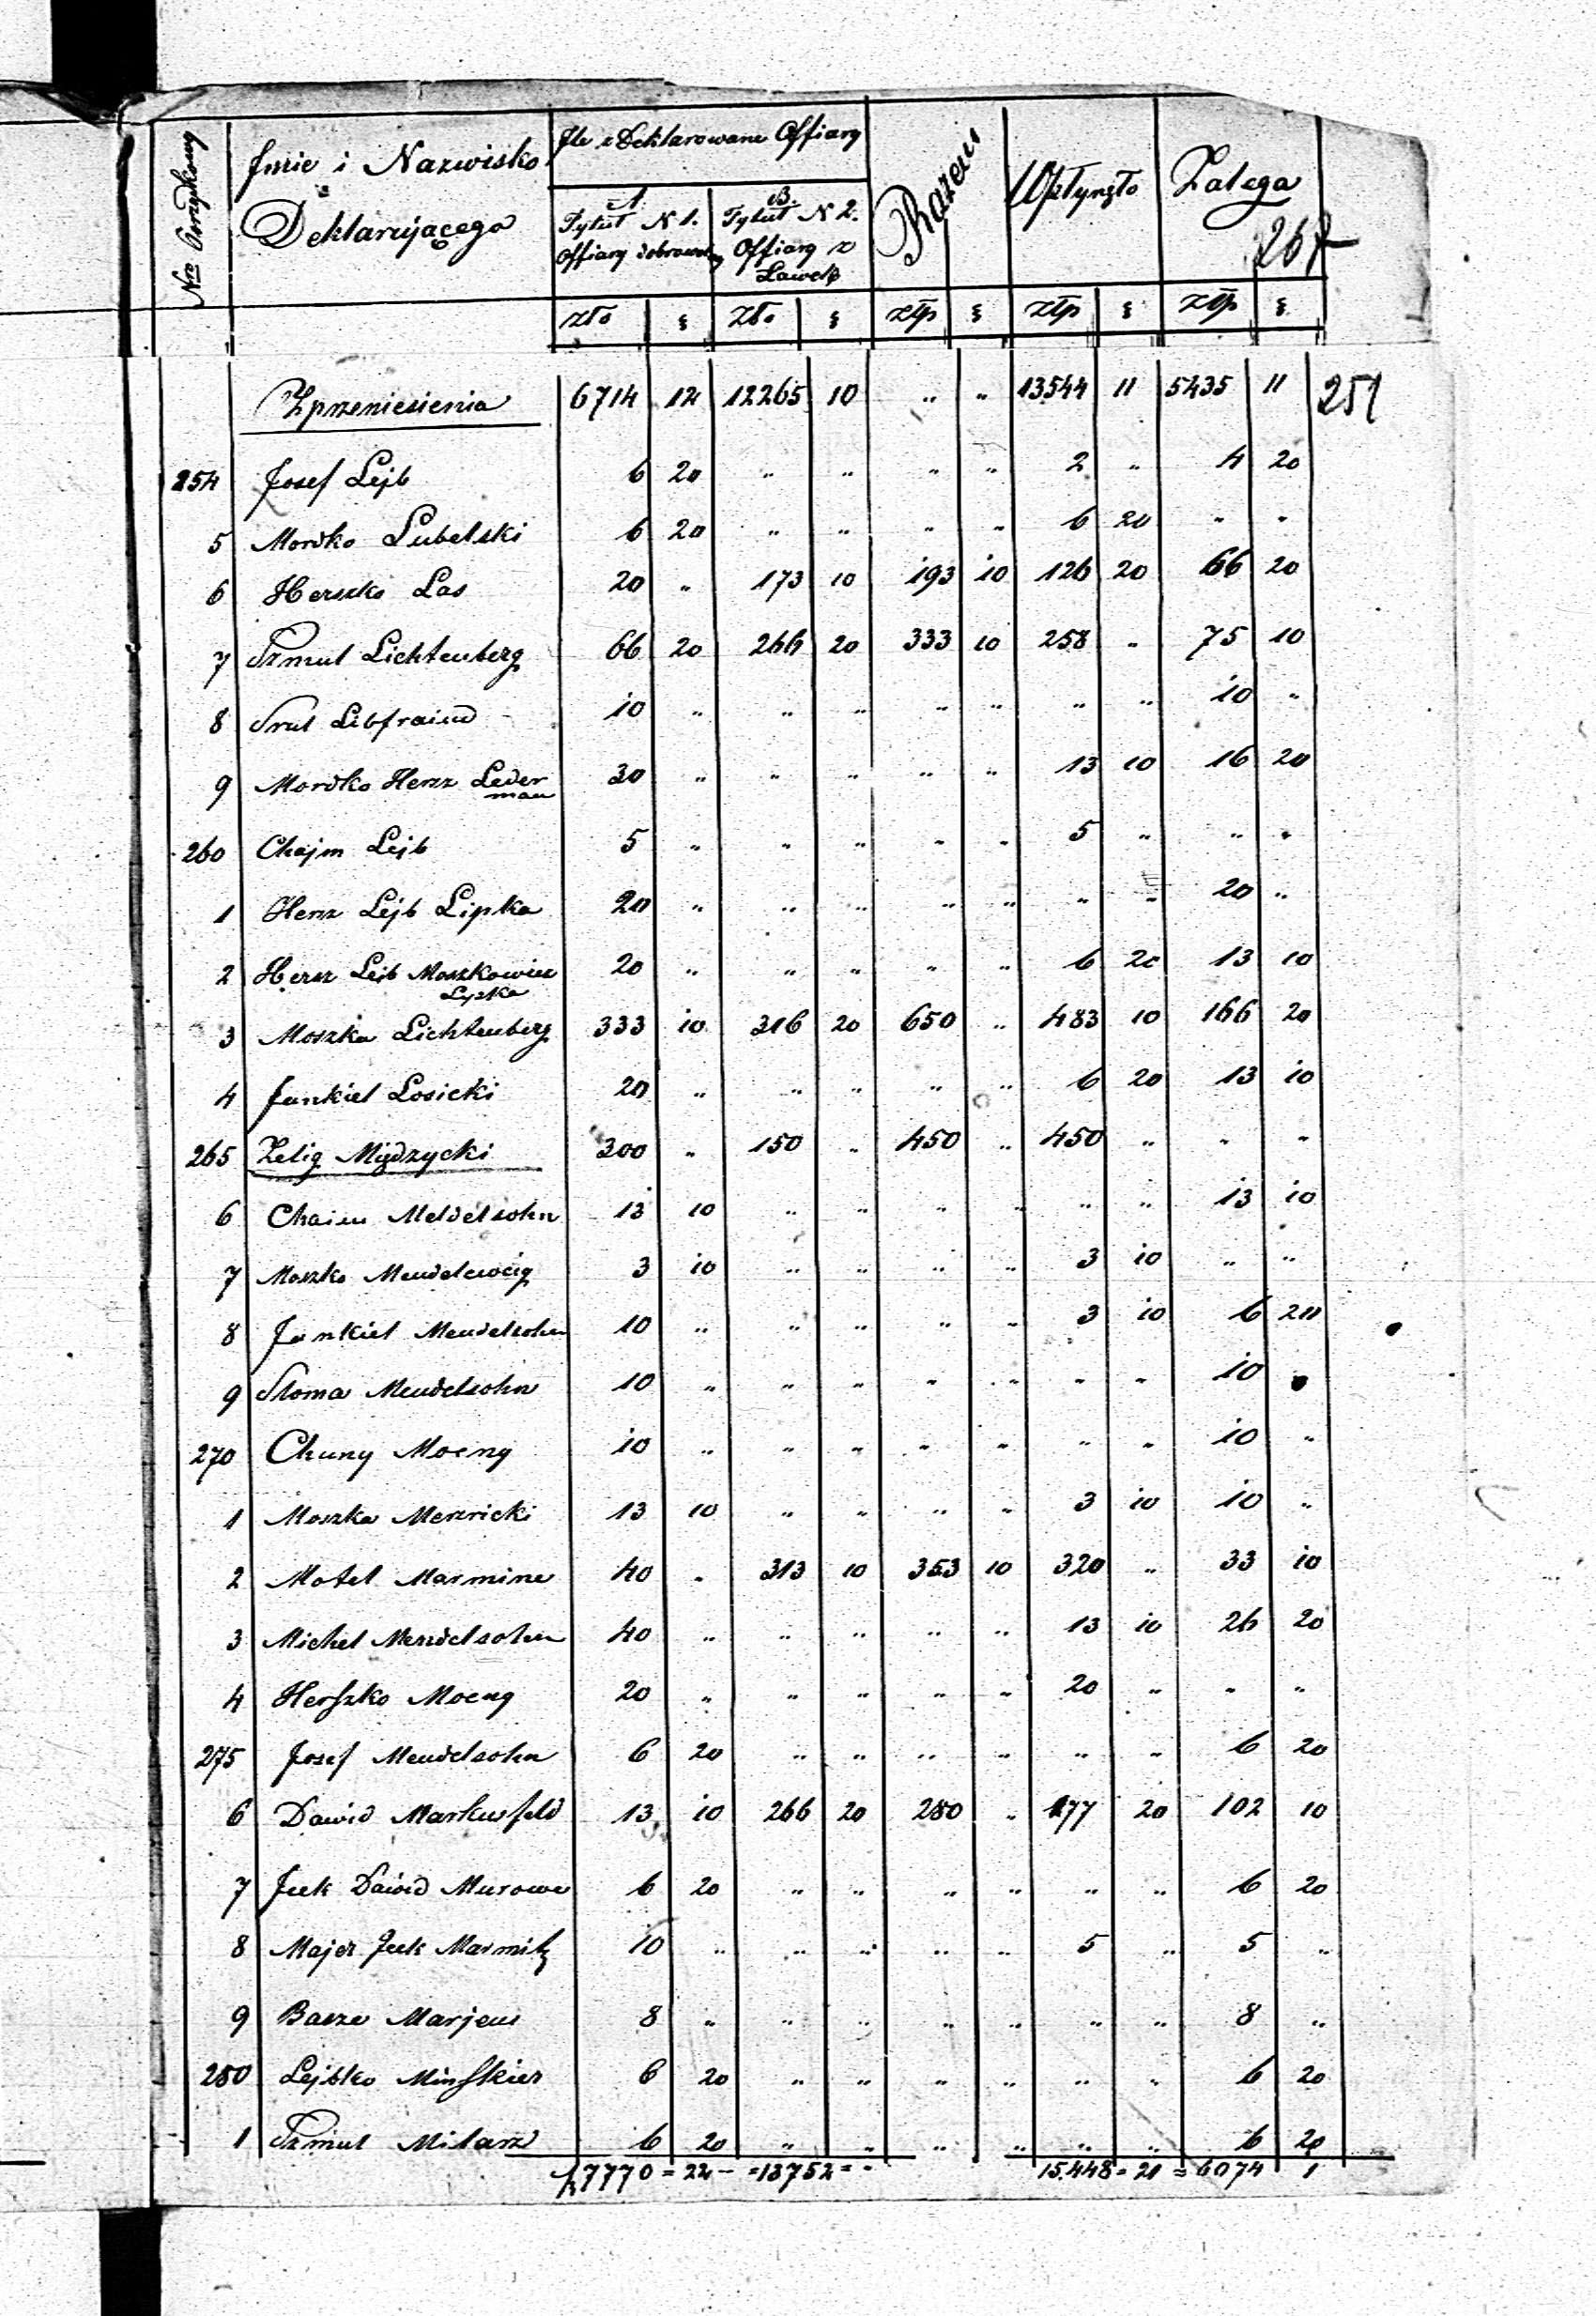 Nro Porządkowy
Imie i Nazwisko Deklarującego
Ile zDeklarowane Offiary
A. Tytuł N 1. Offiary dobrowolny
B. Tytuł N 2. Offiary z Ławek
Razem
Wpłynęło
Zalega
267
złо | g | Zło | g | złp | g | złp | g | złp | g
Zprzeniesienia | 6714 | 12 | 12265 | 10 | „ | „ | 13544 | 11 | 5435 | 11
251
254 | Josef Lejb | 6 | 20 | „ | „ | „ | „ | 2 | „ | 4 | 20
5 | Mordko Lubelski | 6 | 20 | „ | „ | „ | „ | 6 | 20 | „ | „
6 | Herszko Las | 20 | „ | 173 | 10 | 193 | 10 | 126 | 20 | 66 | 20
7 | Szmul Lichtenberg | 66 | 20 | 266 | 20 | 333 | 10 | 258 | „ | 75 | 10
8 | Srul Libfraind | 10 | „ | „ | „ | „ | „ | „ | „ | 10 | „
9 | Mordko Hersz Lederman | 30 | „ | „ | „ | „ | „ | 13 | 10 | 16 | 20
260 | Chajm Lejb | 5 | „ | „ | „ | „ | „ | 5 | „ | „ | „
1 | Hersz Lejb Lipka | 20 | „ | „ | „ | „ | „ | „ | „ | 20 | „
2 | Hersz Lejb Moszkowicz Lyzka | 20 | „ | „ | „ | „ | „ | 6 | 20 | 13 | 10
3 | Moszka Lichtenberg | 333 | 10 | 316 | 20 | 650 | „ | 483 | 10 | 166 | 20
4 | Jankiel Losicki | 20 | „ | „ | „ | „ | „ | 6 | 20 | 13 | 10
265 | Zelig Mijdzycki | 300 | „ | 150 | „ | 450 | „ | 450 | „ | „ | „
6 | Chaim Meldelsohn | 13 | 10 | „ | „ | „ | „ | „ | „ | 13 | 10
7 | Moszko | 3 | 10 | „ | „ | „ | „ | 3 | 10 | „ | „
8 | Jankiel Mendelsohn | 10 | „ | „ | „ | „ | „ | 3 | 10 | 6 | 20
9 | Sloma Mendelsohn | 10 | „ | „ | „ | „ | „ | „ | „ | 10 | „
270 | Chuny Moeng | 10 | „ | „ | „ | „ | „ | „ | „ | 10 | „
1 | Moszka Merzricki | 13 | 10 | „ | „ | „ | „ | 3 | 10 | 10 | „
2 | Motel Marmine | 40 | „ | 313 | 10 | 353 | 10 | 320 | „ | 33 | 10
3 | Michel Mendelsohn | 40 | „ | „ | „ | „ | „ | 13 | 10 | 26 | 20
4 | Herszko Moeng | 20 | „ | „ | „ | „ | „ | 20 | „ | „ | „
275 | Josef Mendelsohn | 6 | 20 | „ | „ | „ | „ | „ | „ | 6 | 20
6 | Dawid Markusfeld | 13 | 10 | 266 | 20 | 280 | „ | 177 | 20 | 102 | 10
7 | Icek Dawid Murowe | 6 | 20 | „ | „ | „ | „ | „ | „ | 6 | 20
8 | Majer Icek | 10 | „ | „ | „ | „ | „ | 5 | „ | 5 | „
9 | Basze Marjem | 8 | „ | „ | „ | „ | „ | „ | „ | 8 | „
280 | Lejbko Minskier | 6 | 20 | „ | „ | „ | „ | „ | „ | 6 | 20
1 | Szmul Milarz | 6 | 20 | „ | „ | „ | „ | „ | „ | 6 | 20
7770 = 22 - = 13752 = - 15.448 = 21 = 6074 1